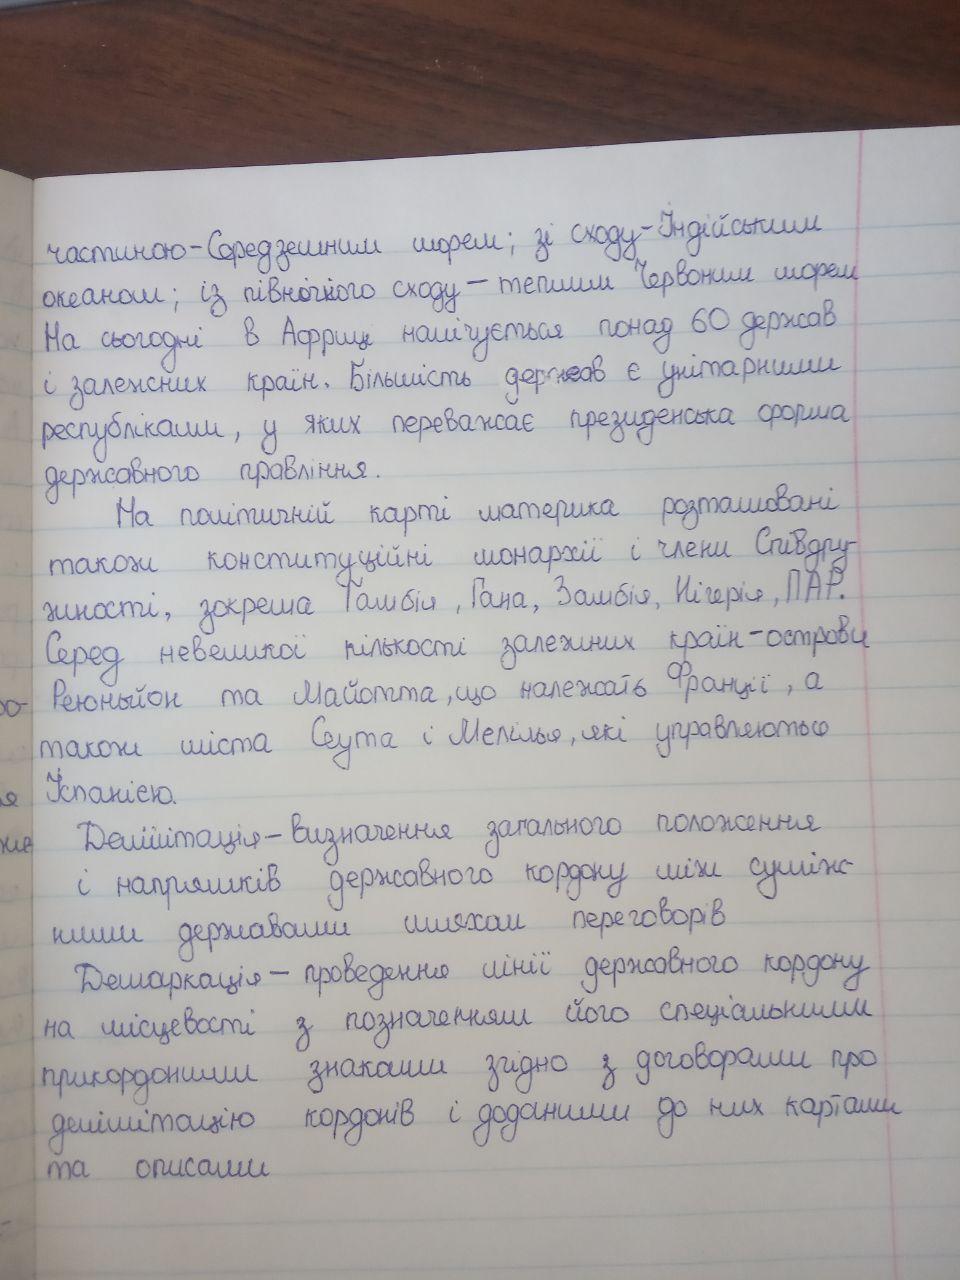 частиною-Середземним морем; зі сходу-Індійським
океаном; із північного сходу-теплим Червоним морем
На сьогодні в Африці налічується понад 60 держав
і залежних країн. Більшість держав є унітарними
республіками, у яких переважає президенська форма
державного правління.
На політичній карті материка розташовані
також конституційні монархії і члени Співдру-
жності, зокрема Гамбія, Гана, Замбія, Нігерія, ПАР.
Серед невеликої кількості залежних країн-острови
Реюньйон та Майотта, що належать Франції, а
також міста Сеута і Мелілья, які управляються
Іспанією.
Делімітація-визначення загального положення
і напрямків державного кордону між суміж-
ними державами шляхом переговорів
Демаркація-проведення лінії державного кордону
на місцевості з позначенням його спеціальними
прикордонними знаками згідно з договорами про
делімітацію кордонів і доданими до них картами
та описами